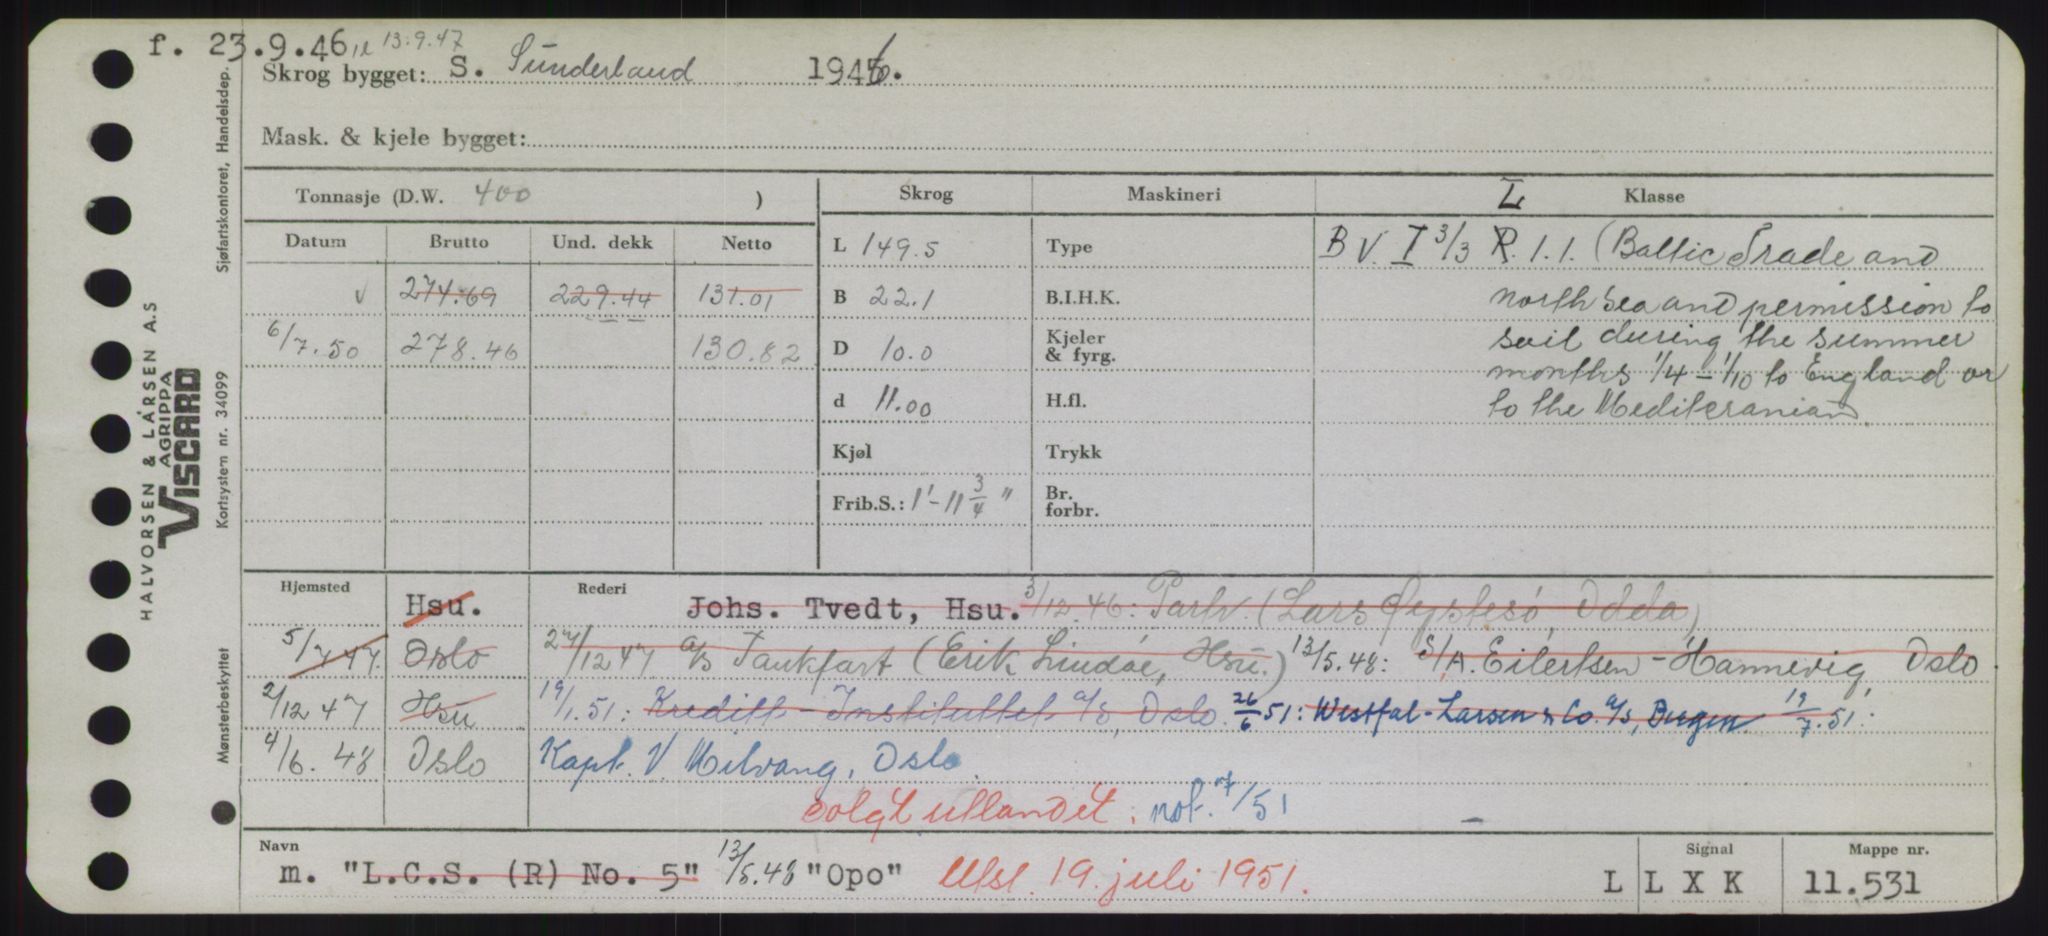 f. 23.9.46 13.9.47
Skrog bygget: S. Sunderland 1946.
Mask. & kjele bygget:
Tonnasje (D.W. 400 )
Skrog
Maskineri
L Klasse
Datum
Brutto
Und. dekk
Netto
274.69
229.44
131.01
6/7.50
278.46
130.82
L 149.5
B 22.1
D 10.0
d 11.00
Kjøl
Frib.S.: 1'-11 3/4"
Type
B.I.H.K.
Kjeler
& fyrg.
H.fl.
Trykk
Br.
forbr.
B V. I 3/3 R. 1.1. (Baltic Trade and
north sea and permission to
sail during the summer
months 1/4 - 1/10 to England or
to the Mediteranian
Hjemsted
Rederi
Hsu.
Johs. Tvedt, Hsu. 3/12.46: Partr. (Lars Øystesø, Odda)
5/7 47. Oslo
27/12 47 a/s Tankfart (Erik Lindøe, Hsu.) 13/5.48: S/A. Eilertsen-Hannevig, Oslo.
2/12 47 Hsu
19/1.51: Kreditt-Instituttet a/s, Oslo. 26/6 51: Westfal-Larsen & Co. a/s, Bergen. 19/7.51:
4/6. 48 Oslo
Kapt. V. Milvang, Oslo.
Solgt utlandet: not. 7/51
Navn
m. "L.C.S. (R) No. 5" 13/5.48 "Opo" Utsl. 19. juli 1951.
Signal
L L X K
Mappe nr.
11.531
HALVORSEN & LARSEN A.S
AGRIPPA
VISCARD
Sjøfartskontoret, Handelsdep.
Kortsystem nr. 34099
Mønsterbeskyttet